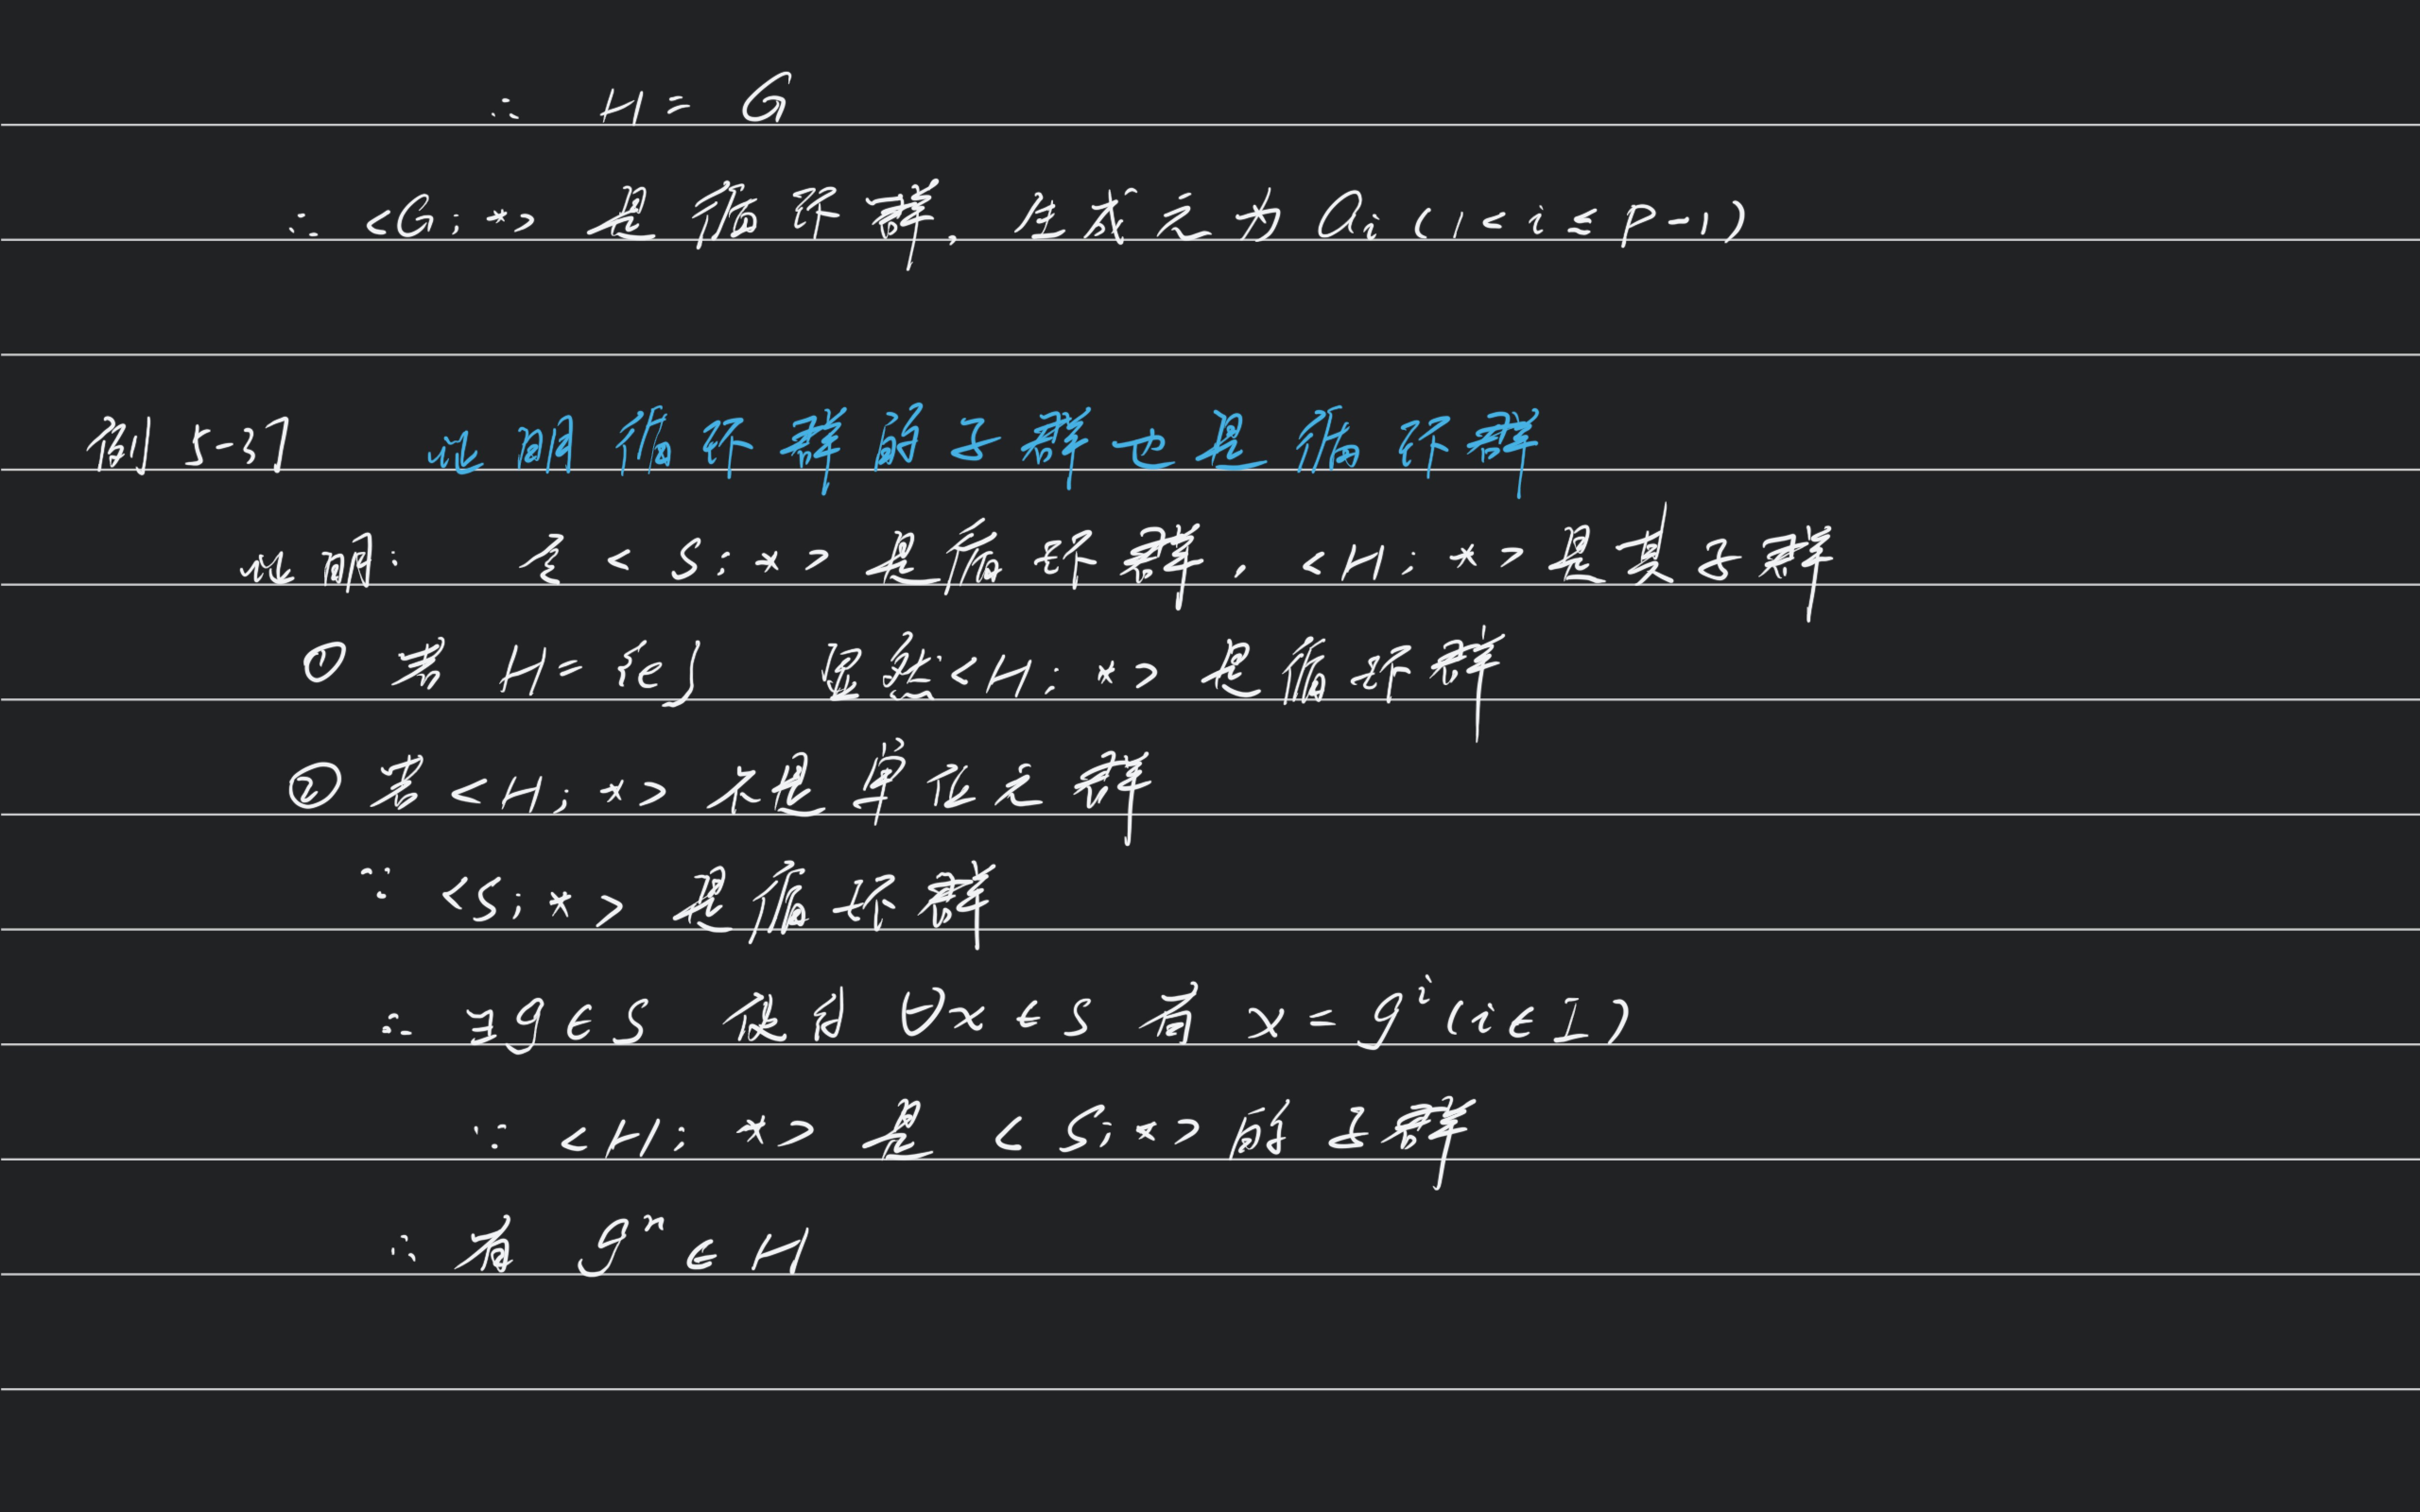 ∴ H = G
∴ <G; *> 是循环群, 生成元为 aᵢ (1 < i ≤ p-1)
例 5-37 证明循环群的子群也是循环群
证明: 令 < S; * > 是循环群, <H; *> 是其子群
① 若 H = {e} 显然 <H; *> 是循环群
② 若 <H; *> 不是单位元群
∵ <S; *> 是循环群
∴ ∃g∈S 使得 ∀x∈S 有 x = gⁱ (i∈I)
∵ <H; *> 是 <S; *> 的子群
∴ 有 gⁿ ∈ H